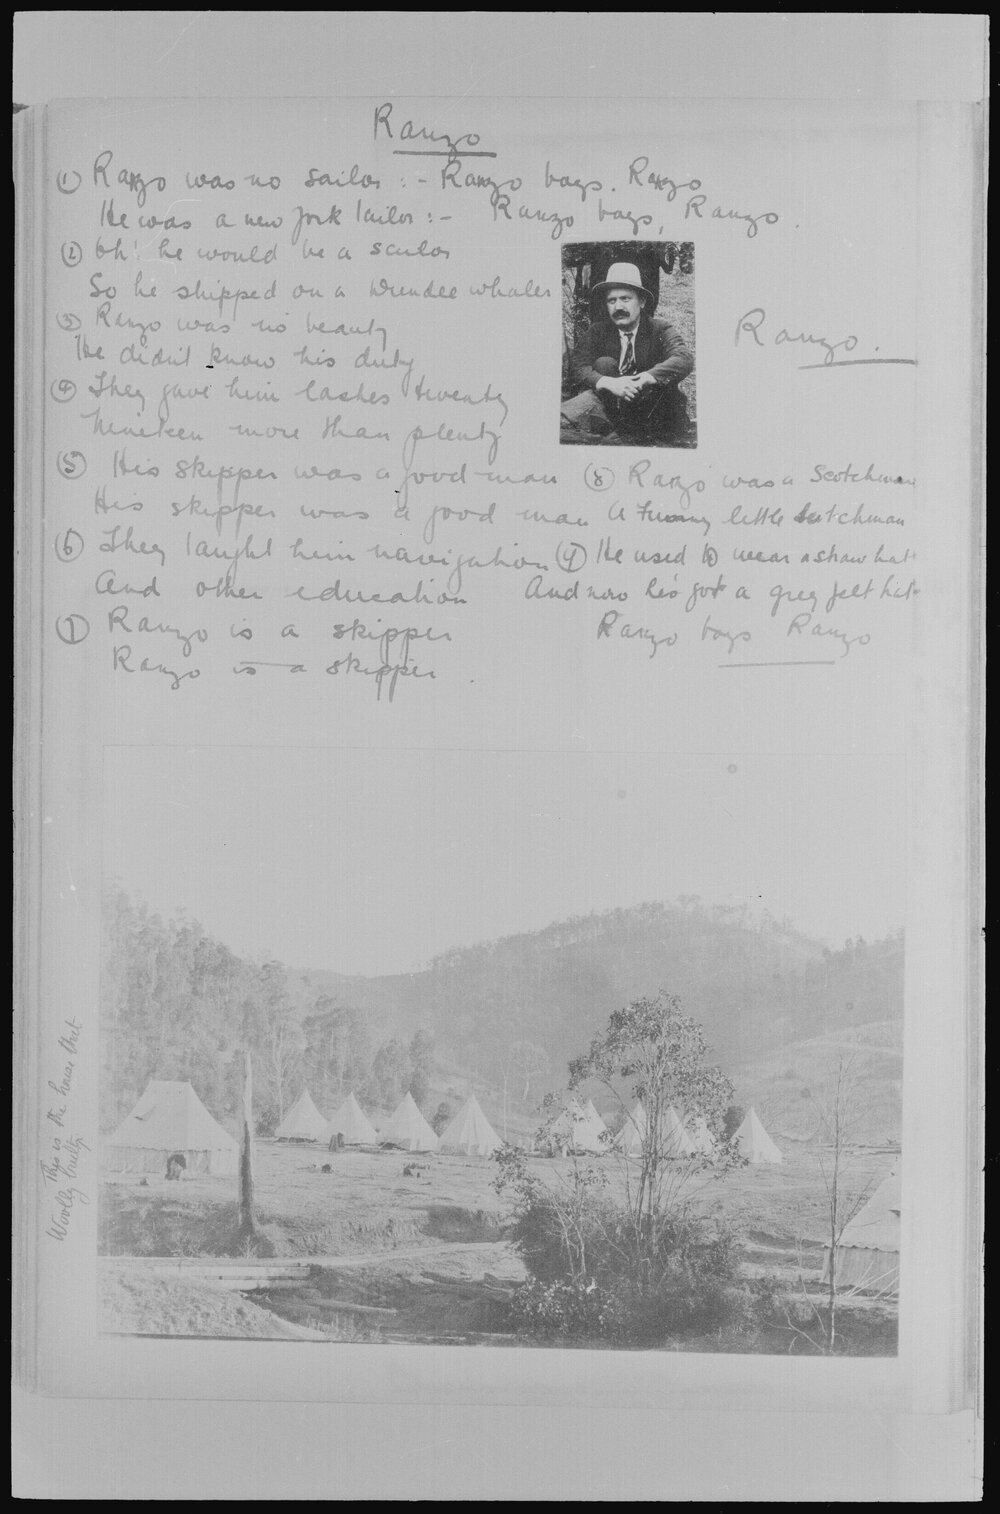 Ranzo
① Ranzo was no sailor :- Ranzo boys. Ranzo
He was a new York tailor :- Ranzo boys, Ranzo.
② Oh! he would be a sailor
So he shipped on a Dundee whaler
③ Ranzo was no beauty
He didn't know his duty
Ranzo.
④ They gave him lashes twenty
Nineteen more than plenty
⑤ His skipper was a good man
His skipper was a good man
⑥ They taught him navigation
And other education
⑦ Ranzo is a skipper
Ranzo is a skipper.
⑧ Ranzo was a Scotchman
A Funny little Dutchman
⑨ He used to wear a straw hat
And now he's got a grey felt hat
Ranzo boys Ranzo
This is the house that
Woolly built